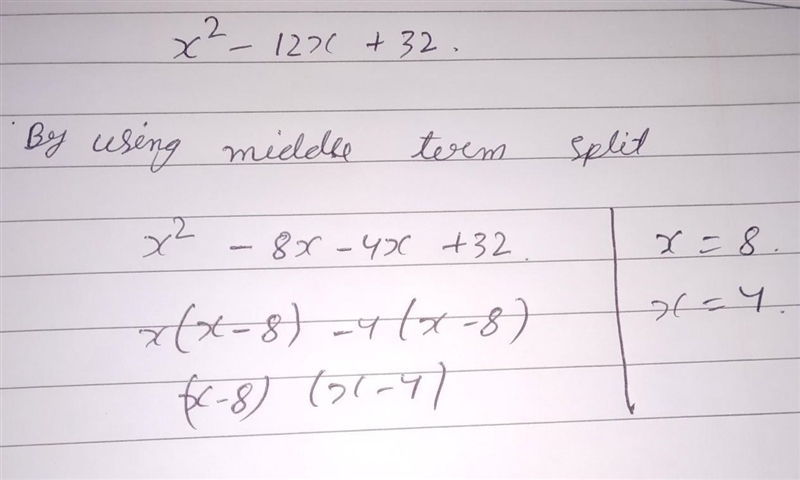 x² - 12x + 32.
By using middle term split
x² - 8x - 4x + 32.
x(x-8) -4(x-8)
(x-8) (x-4)
x = 8.
x = 4.